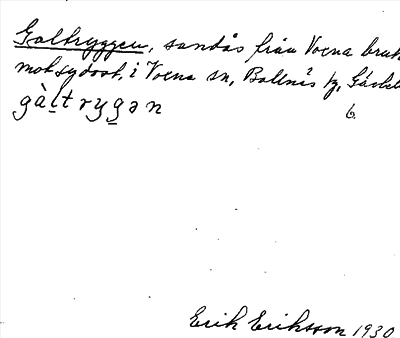 Galtryggen, sandås från Voxna bruk
mot sydost, i Voxna sn, Bollnäs kg, Gävleb
gàltrygən
6.
Erik Eriksson 1930